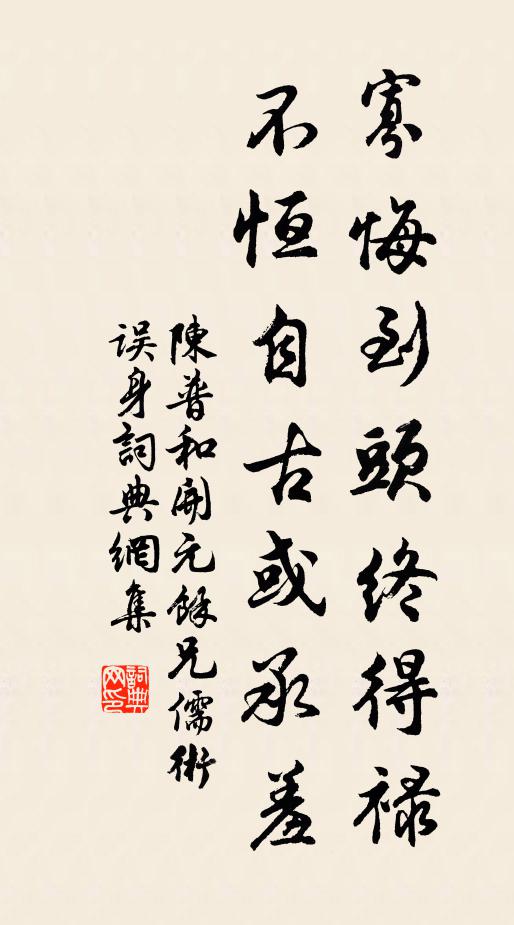 寡悔到頭終得祿
不恒自古或承羞
陳普和開元餘兄儒術
误身詞典網集
詞典网印